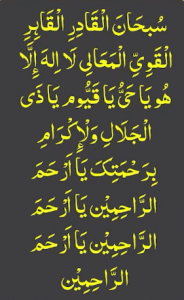 سُبحَانَ الْقَادِرِ الْقَاہِرِ
الْقَوِیِّ الْمَعَالِی لَا اِلٰهَ اِلَّا
هُوَ یَا حَیُّ یَا قَیُّوم یَا ذَی
الْجَلَالِ وَلْاِکْرَامِ
بِرَحْمَتِکَ یَا اَرْحَمَ
الرَّاحِمِیْن یَا اَرْحَمَ
الرَّاحِمِیْن یَا اَرْحَمَ
الرَّاحِمِیْن